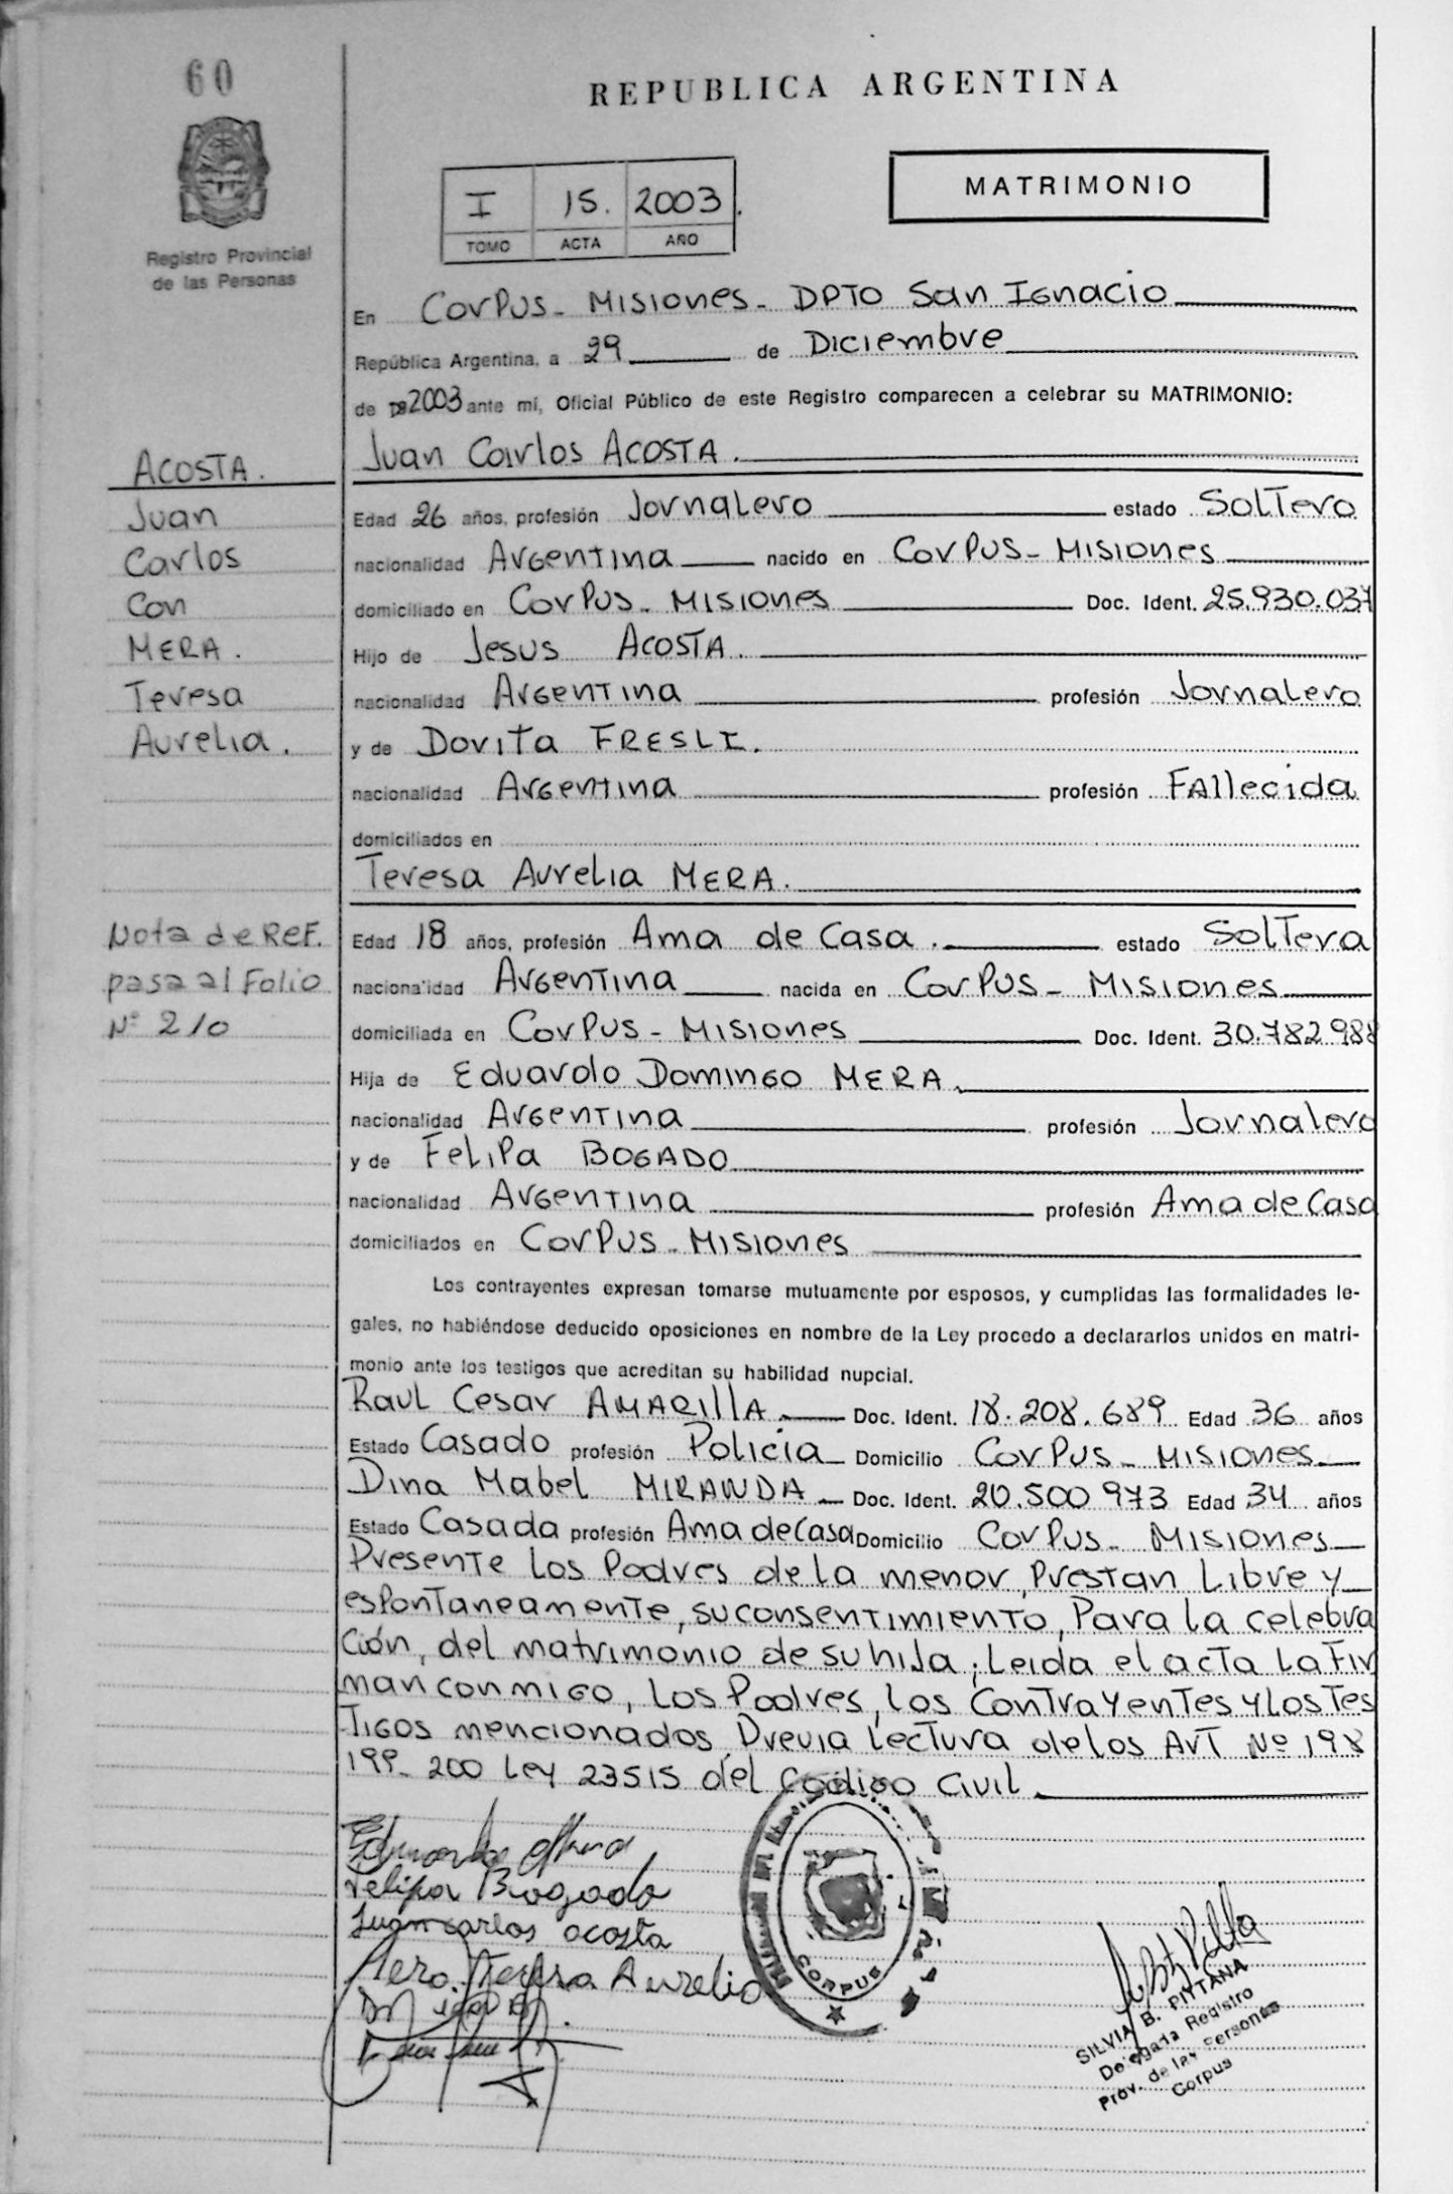 60
REPUBLICA ARGENTINA
MATRIMONIO
I 15. 2003.
TOMO ACTA AÑO
Registro Provincial
de las Personas
En Corpus - Misiones - DPTO San Ignacio
República Argentina, a 29 de Diciembre
de 2003 ante mí, Oficial Público de este Registro comparecen a celebrar su MATRIMONIO:
Juan Carlos ACOSTA.
ACOSTA.
Juan
Carlos
Con
MERA.
Teresa
Aurelia.
Edad 26 años, profesión Jornalero estado Soltero
nacionalidad Argentina nacido en Corpus - Misiones
domiciliado en Corpus - Misiones Doc. Ident. 25.930.037
Hijo de Jesus ACOSTA.
nacionalidad Argentina profesión Jornalero
y de Dorita FRESLI.
nacionalidad Argentina profesión FAllecida
domiciliados en
Teresa Aurelia MERA.
Nota de Ref.
pasa al Folio
Nº 210
Edad 18 años, profesión Ama de Casa. estado Soltera
nacionalidad Argentina nacida en Corpus - Misiones
domiciliada en Corpus - Misiones Doc. Ident. 30.782.988
Hija de Eduardo Domingo MERA.
nacionalidad Argentina profesión Jornalero
y de Felipa BOGADO
nacionalidad Argentina profesión Ama de Casa
domiciliados en Corpus - Misiones
Los contrayentes expresan tomarse mutuamente por esposos, y cumplidas las formalidades le-
gales, no habiéndose deducido oposiciones en nombre de la Ley procedo a declararlos unidos en matri-
monio ante los testigos que acreditan su habilidad nupcial.
Raul Cesar AMARIllA Doc. Ident. 18.208.689 Edad 36 años
Estado Casado profesión Policia Domicilio Corpus - Misiones
Dina Mabel MIRANDA Doc. Ident. 20.500 973 Edad 34 años
Estado Casada profesión Ama de Casa Domicilio Corpus - Misiones
Presente los Padres de la menor, Prestan Libre y
espontaneamente, su consentimiento, Para la celebra
ción, del matrimonio de su hija; Leida el acta la Fir
man conmigo, los Padres, los Contrayentes y los Tes
Tigos mencionados, Previa Lectura de los Art Nº 198
199- 200 Ley 23515 del Codigo Civil
Felipa Bogado
Juan carlos acosta
Mera Teresa Aurelia
CORPUS
SILVIA B. PITTANA
Delegada Registro
Prov. de las Personas
Corpus